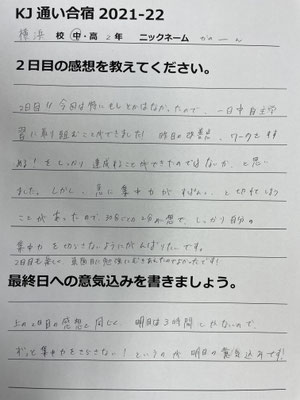 KJ 通い合宿 2021-22
横浜 校 中・高 2年 ニックネーム
2日目の感想を教えてください。
2日目!! 今日は特にもしとかはなかったので、一日中自主学
習に取り組むことができました! 昨日の 、ワークをすす
める! をしっかり達成することができたのではないか、と思い
ました。しかし、急に集中力が 、と切れてしまう
ことがあったので、 しっかり自分の
集中力を切らさないようにがんばりたいです。
2日目も楽しく、真面目に勉強にむきあえたのでよかったです!
最終日への意気込みを書きましょう。
上の2日目の感想と同じく、明日は3時間しかないので、
ずっと集中力をきらさない! というのが明日の意気込みです!